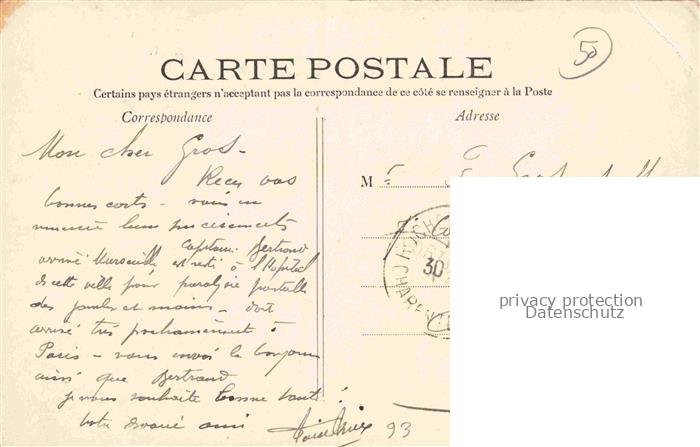 50
CARTE POSTALE
Certains pays étrangers n'acceptant pas la correspondance de ce côté se renseigner à la Poste
Correspondance
Adresse
Mon cher Gros -
Reçu vos
bonnes cartes - vous en
remercie bien sincèrement
Capitaine Bertrand
arrivé Marseille est resté à l'Hôpital
de cette ville pour paralysie partielle
des jambes et mains - doit
arriver très prochainement à
Paris - vous envoi le bonjour
ainsi que Bertrand
je vous souhaite bonne santé !
votre dévoué ami
93
M
30
privacy protection
Datenschutz